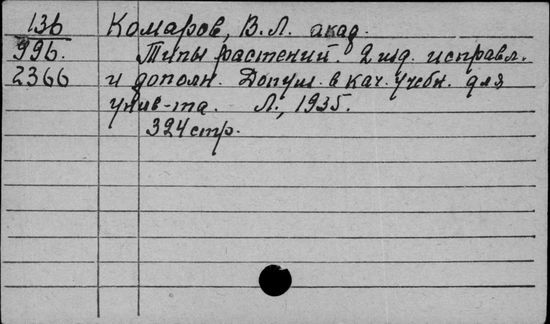 13б Комаров, В.Л. акад.
99б. Типы растений. 2 изд. исправл.
2366 и дополн. Допущ. в кач. учебн. для
унив-та. Л., 1935.
324 стр.